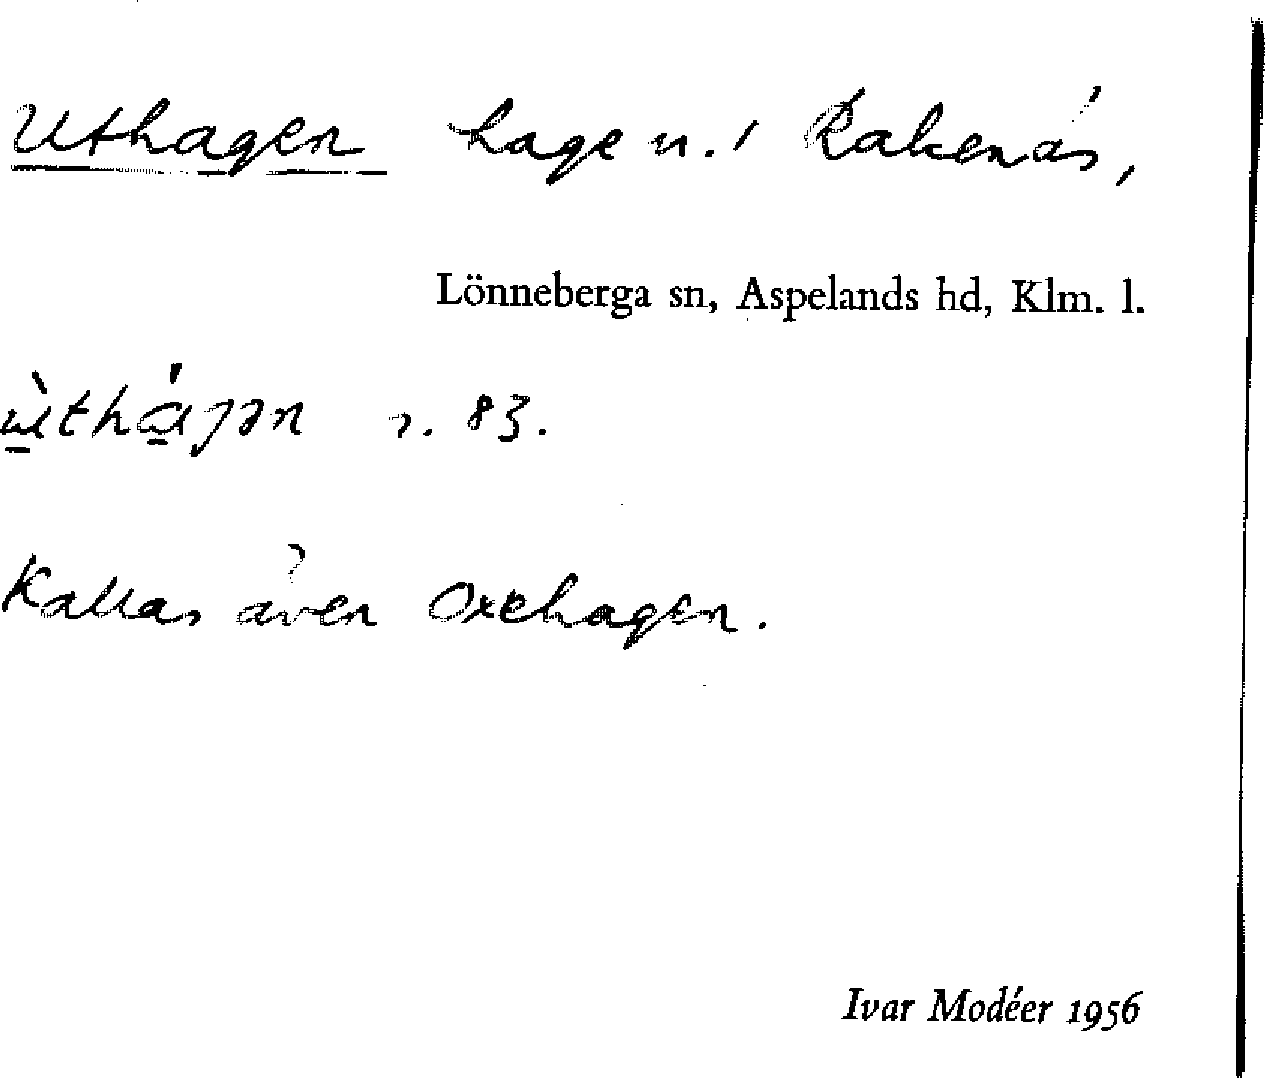 Uthagen hage n. i Rakenäs,
Lönneberga sn, Aspelands hd, Klm. l.
ùthájən s. 83.
Kallas även Oxehagen.
Ivar Modéer 1956